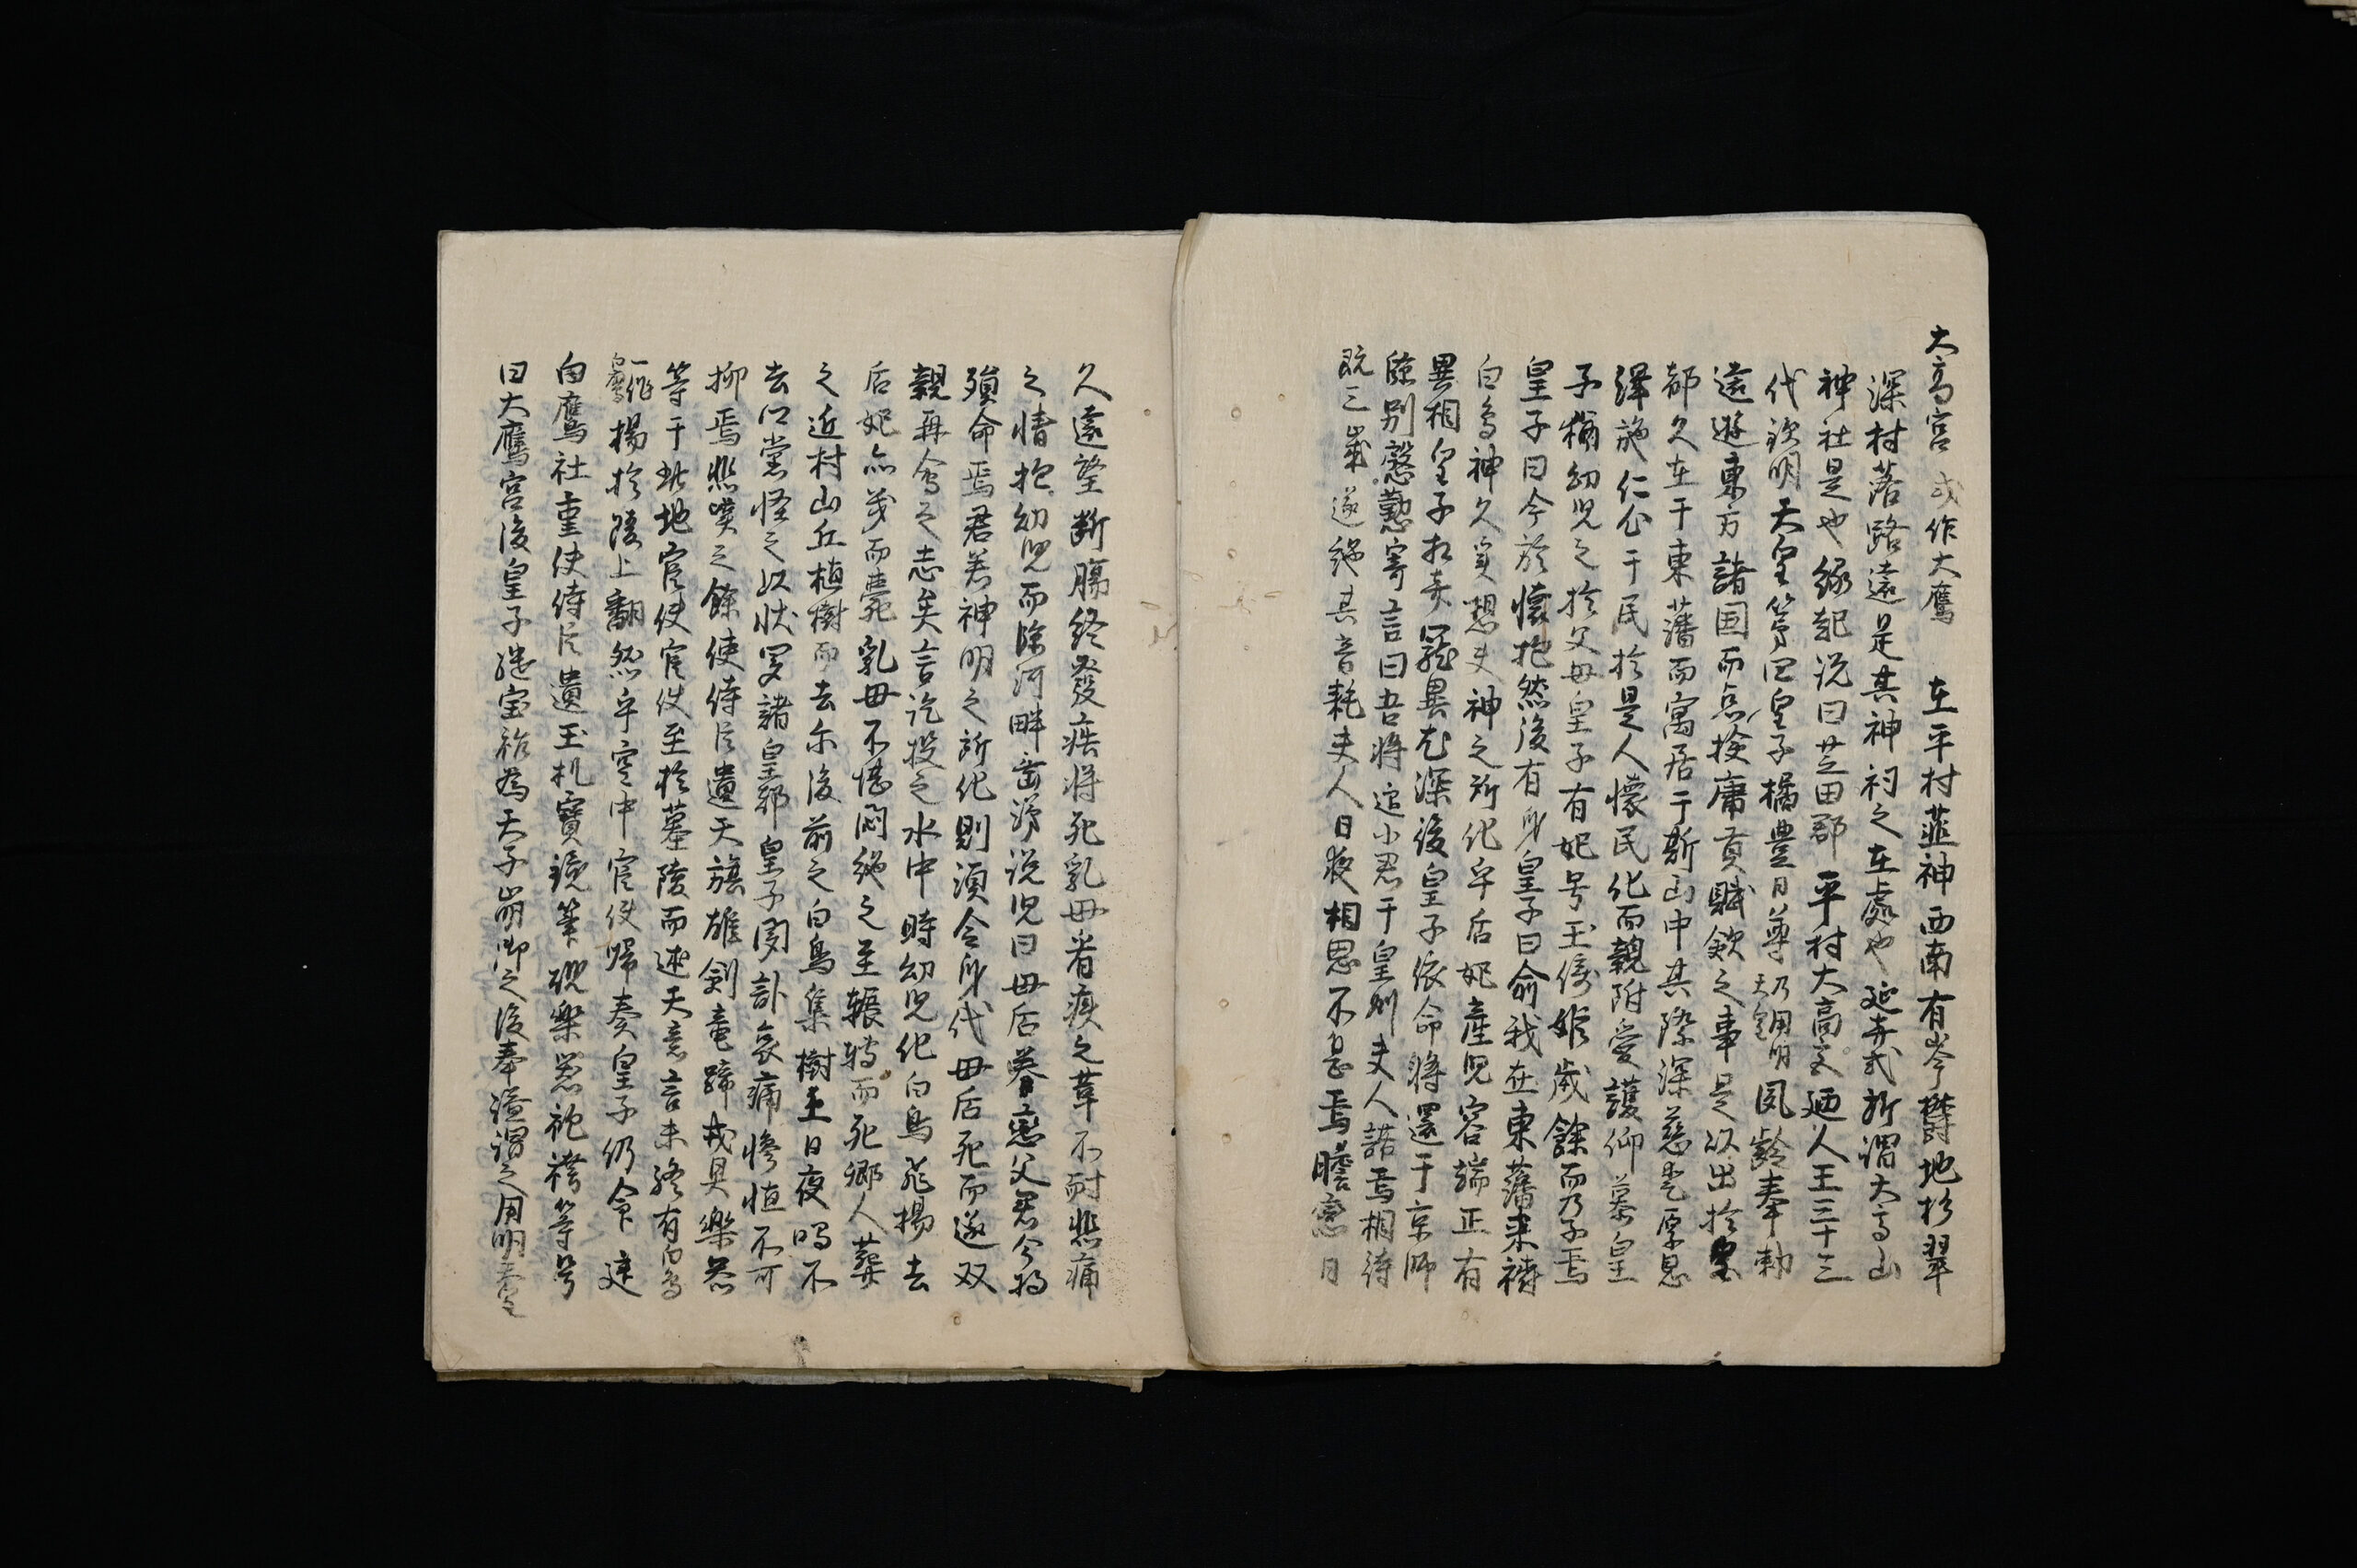 大高宮 或作大鷹 在平村韮神西南有岑欝地杉翠
深村落路遠是其神祠之在處也延喜式所謂大高山
神社是也縁起説曰芝田郡平村大高宮廼人王三十三
代欽明天皇第四皇子橘豊日尊乃用明天皇夙齢奉勅
遠遊東方諸国而点撿庸貢賦斂之事是以出於皇
都久在于東藩而寓居于斯山中其際深慈愛厚恩
澤施仁心于民於是人懐民化而親附愛護仰慕皇
子猶幼児之於父母皇子有妃号玉倚姫歳餘而乃子焉
皇子曰今於懐抱然後有身皇子曰俞我在東藩来祷
白鳥神久矣想夫神之所化乎后妃産児容端正有
異相皇子於寵異尤深後皇子依命将還于京師
臨別慇懃寄言曰吾将迎小君于皇州夫人諾焉相待
既三歳遂絶其音耗夫人日夜相思不息焉瞻恋日
久遠望断腸終發疾将死乳母看疾之輩不耐悲痛
之情抱幼児而臨河畔密語説児曰母后慕恋父君今将
殞命焉君若神明之所化則須令身代母后死而遂双
親再會之志矣言訖投之水中時幼児化白鳥飛揚去
后妃亦尋而薨乳母不堪悶絶之至輾轉而死郷人葬
之近村山丘植樹而去尓後前之白鳥集樹上日夜鳴不
去郷党怪之以状聞諸皇都皇子聞訃哀痛惨怛不可
抑焉悲嘆之餘使侍臣遺天旗雄剣竜蹄戎具楽器
等于此地官使官使至於墓陵而述天意言未終有白鳥
一作白鷹揚於陵上翻然乎空中官使歸奏皇子仍命建
白鷹社重使侍臣遺玉机寶鏡筆硯楽器袍袴等号
曰大鷹宮後皇子継宝祚為天子崩御之後奉諡謂之用明天皇